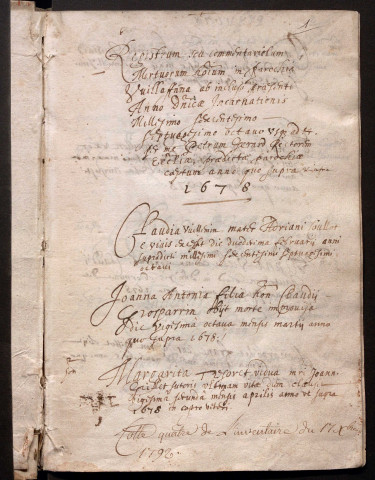 Registrum seu commentariolum
Mortuorum hominum in parochia
Vuillafana ab incluso præsenti
Anno Dnicæ Incarnationis
Millesimo sexcentesimo
septuagesimo octavo
per me Petrum Gerard Rectorem
Ecclesiæ prædictæ parochiæ
cœptum anno quo supra
1678
Claudia Vuillemin mater Floriani
e vivis excessit die duodecima februarii anni
supradicti millesimi sexcentesimi septuagesimi
octavi
Joanna Antonia filia hon Claudii
Grosperrin obiit morte improvisa
die vigesima octava mensis martii anno
quo supra 1678.
Margarita vidua
sutoris ultimam vitæ diem clausit
vigesima secunda mensis aprilis anno ut supra
1678
Cotte quatre de L'inventaire du
1792.